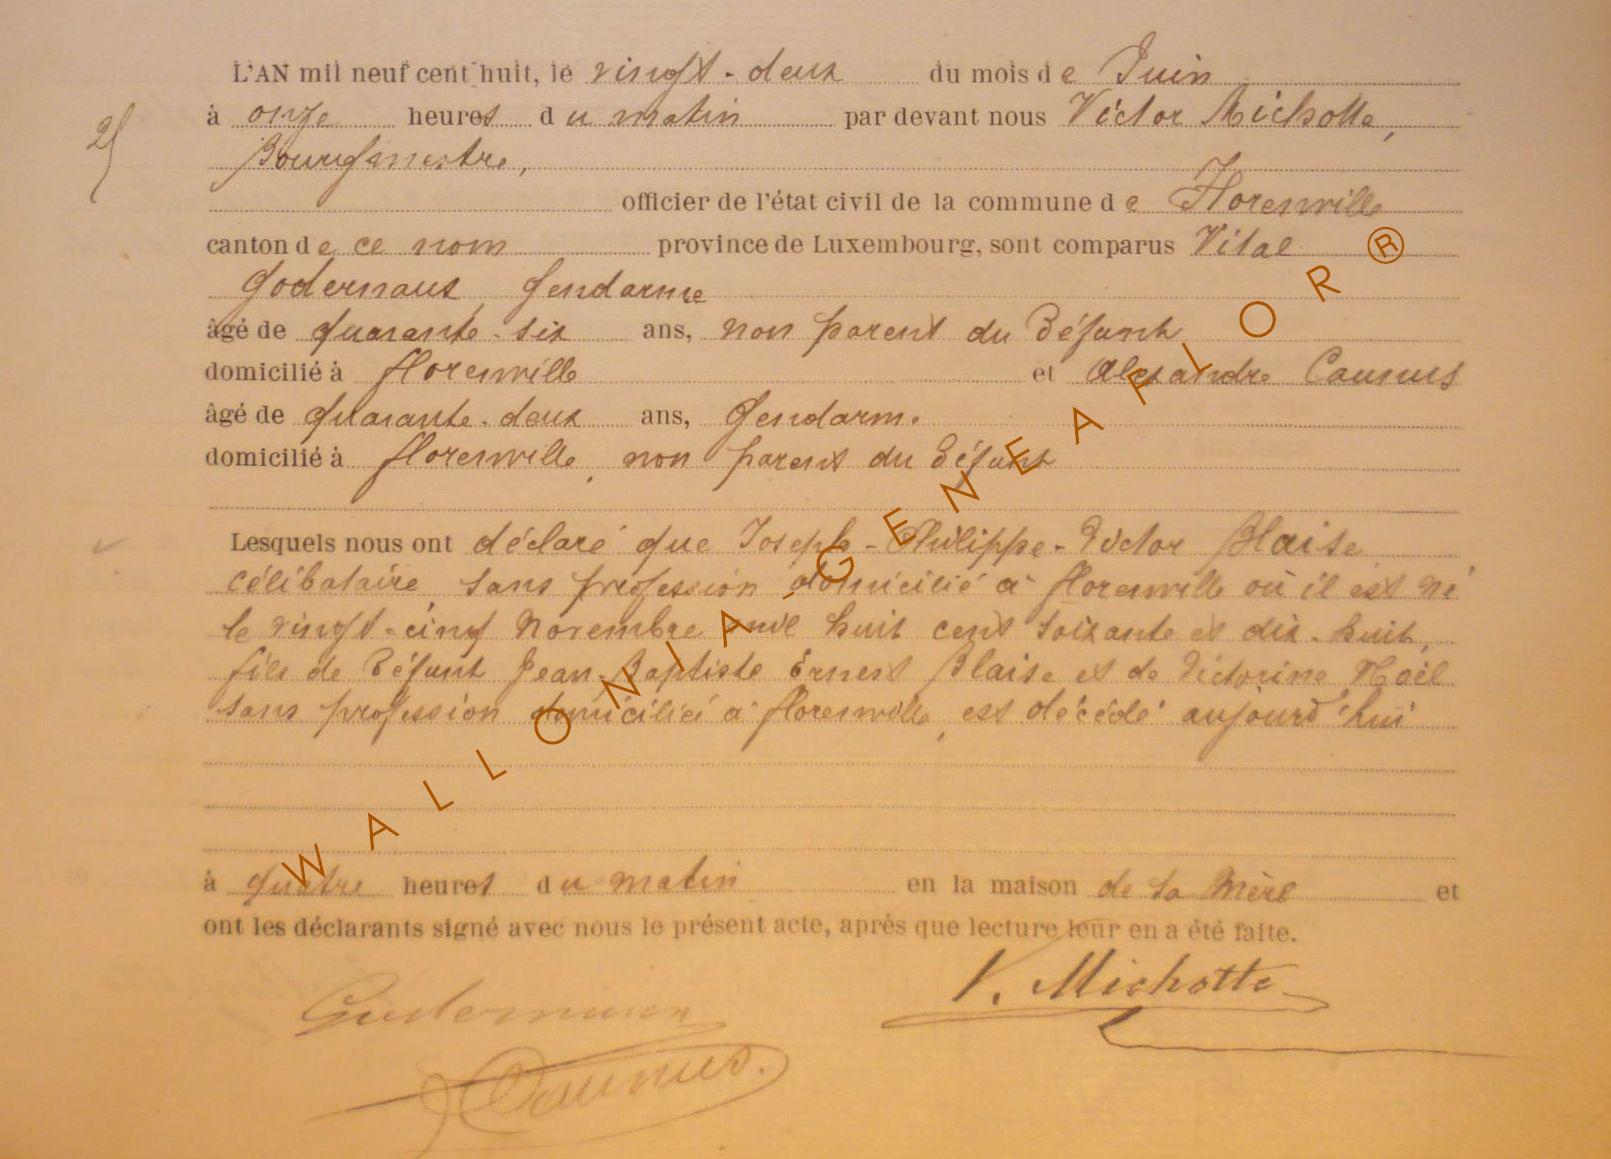 L'AN mil neuf cent huit, le vingt-deux du mois de Juin
à onze heures du matin par devant nous Victor Michotte,
Bourgmestre,
officier de l'état civil de la commune de Florenville
canton de ce nom province de Luxembourg, sont comparus Vital
Godernaux, Gendarme
âgé de quarante-six ans, non parent du Défunt
domicilié à florenville et Alexandre Caunus
âgé de quarante-deux ans, Gendarm.
domicilié à florenville, non parent du Défunt
Lesquels nous ont déclaré que Joseph-Philippe-Victor Blaise
célibataire, sans profession domicilié à florenville où il est né
le vingt-cinq Novembre mil huit cent soixante et dix-huit,
fils de Défunt Jean-Baptiste Ernest Blaise et de Victorine Noël
sans profession domiciliéi à florenville, est décédé aujourd'hui
à quatre heures du matin en la maison de sa Mère et
ont les déclarants signé avec nous le présent acte, après que lecture leur en a été faite.
V. Michotte
Caunus.
WALLONIA-GENEAFLOR®